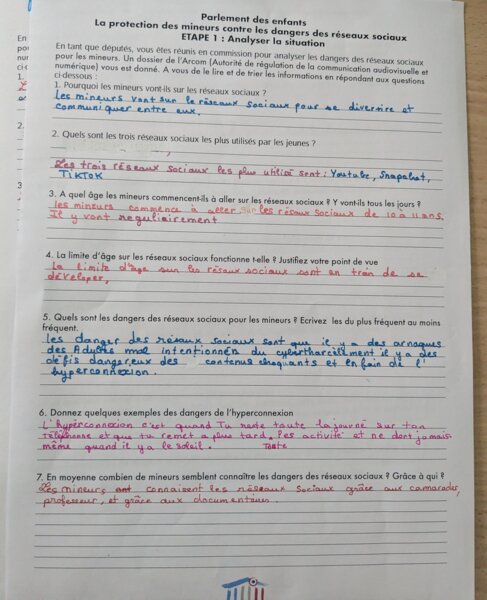 Parlement des enfants
La protection des mineurs contre les dangers des réseaux sociaux
ETAPE 1 : Analyser la situation
En tant que députés, vous êtes réunis en commission pour analyser les dangers des réseaux sociaux
pour les mineurs. Un dossier de l'Arcom (Autorité de régulation de la communication audiovisuelle et
numérique) vous est donné. A vous de le lire et de trier les informations en répondant aux questions
ci-dessous :
1. Pourquoi les mineurs vont-ils sur les réseaux sociaux ?
Les mineurs vont sur le réseaux sociaux pour se divertire et
communiquer entre eux.
2. Quels sont les trois réseaux sociaux les plus utilisés par les jeunes ?
Les trois réseaux sociaux les plus utilisé sont : Youtube, Snapchat,
TIKTOK
3. A quel âge les mineurs commencent-ils à aller sur les réseaux sociaux ? Y vont-ils tous les jours ?
les mineurs commence à aller sur les résaux sociaux de 10 à 11 ans.
Il y vont reguliairement
4. La limite d'âge sur les réseaux sociaux fonctionne t-elle ? Justifiez votre point de vue
La limite d'âge sur les réseaux sociaux sont en train de se
déveloper,
5. Quels sont les dangers des réseaux sociaux pour les mineurs ? Ecrivez les du plus fréquent au moins
fréquent.
les danger des résaux sociaux sont que il y a des arnaques
des Adultes mal intentionnés du cyberharcellement il y a des
défis dangereux des contenus choquants et en fain de l'
hyperconnexion.
6. Donnez quelques exemples des dangers de l'hyperconnexion
L'hyperconnexion c'est quand Tu reste toute la journé sur ton
Téléphonne et que tu remet a plus tard. Les activité et ne dort jamais
même quand il y a le soleil. Toute
7. En moyenne combien de mineurs semblent connaître les dangers des réseaux sociaux ? Grâce à qui ?
Les mineurs ont connaisent les réseaux sociaux grâce aux camarades,
professeur, et grâce aux documentaires.